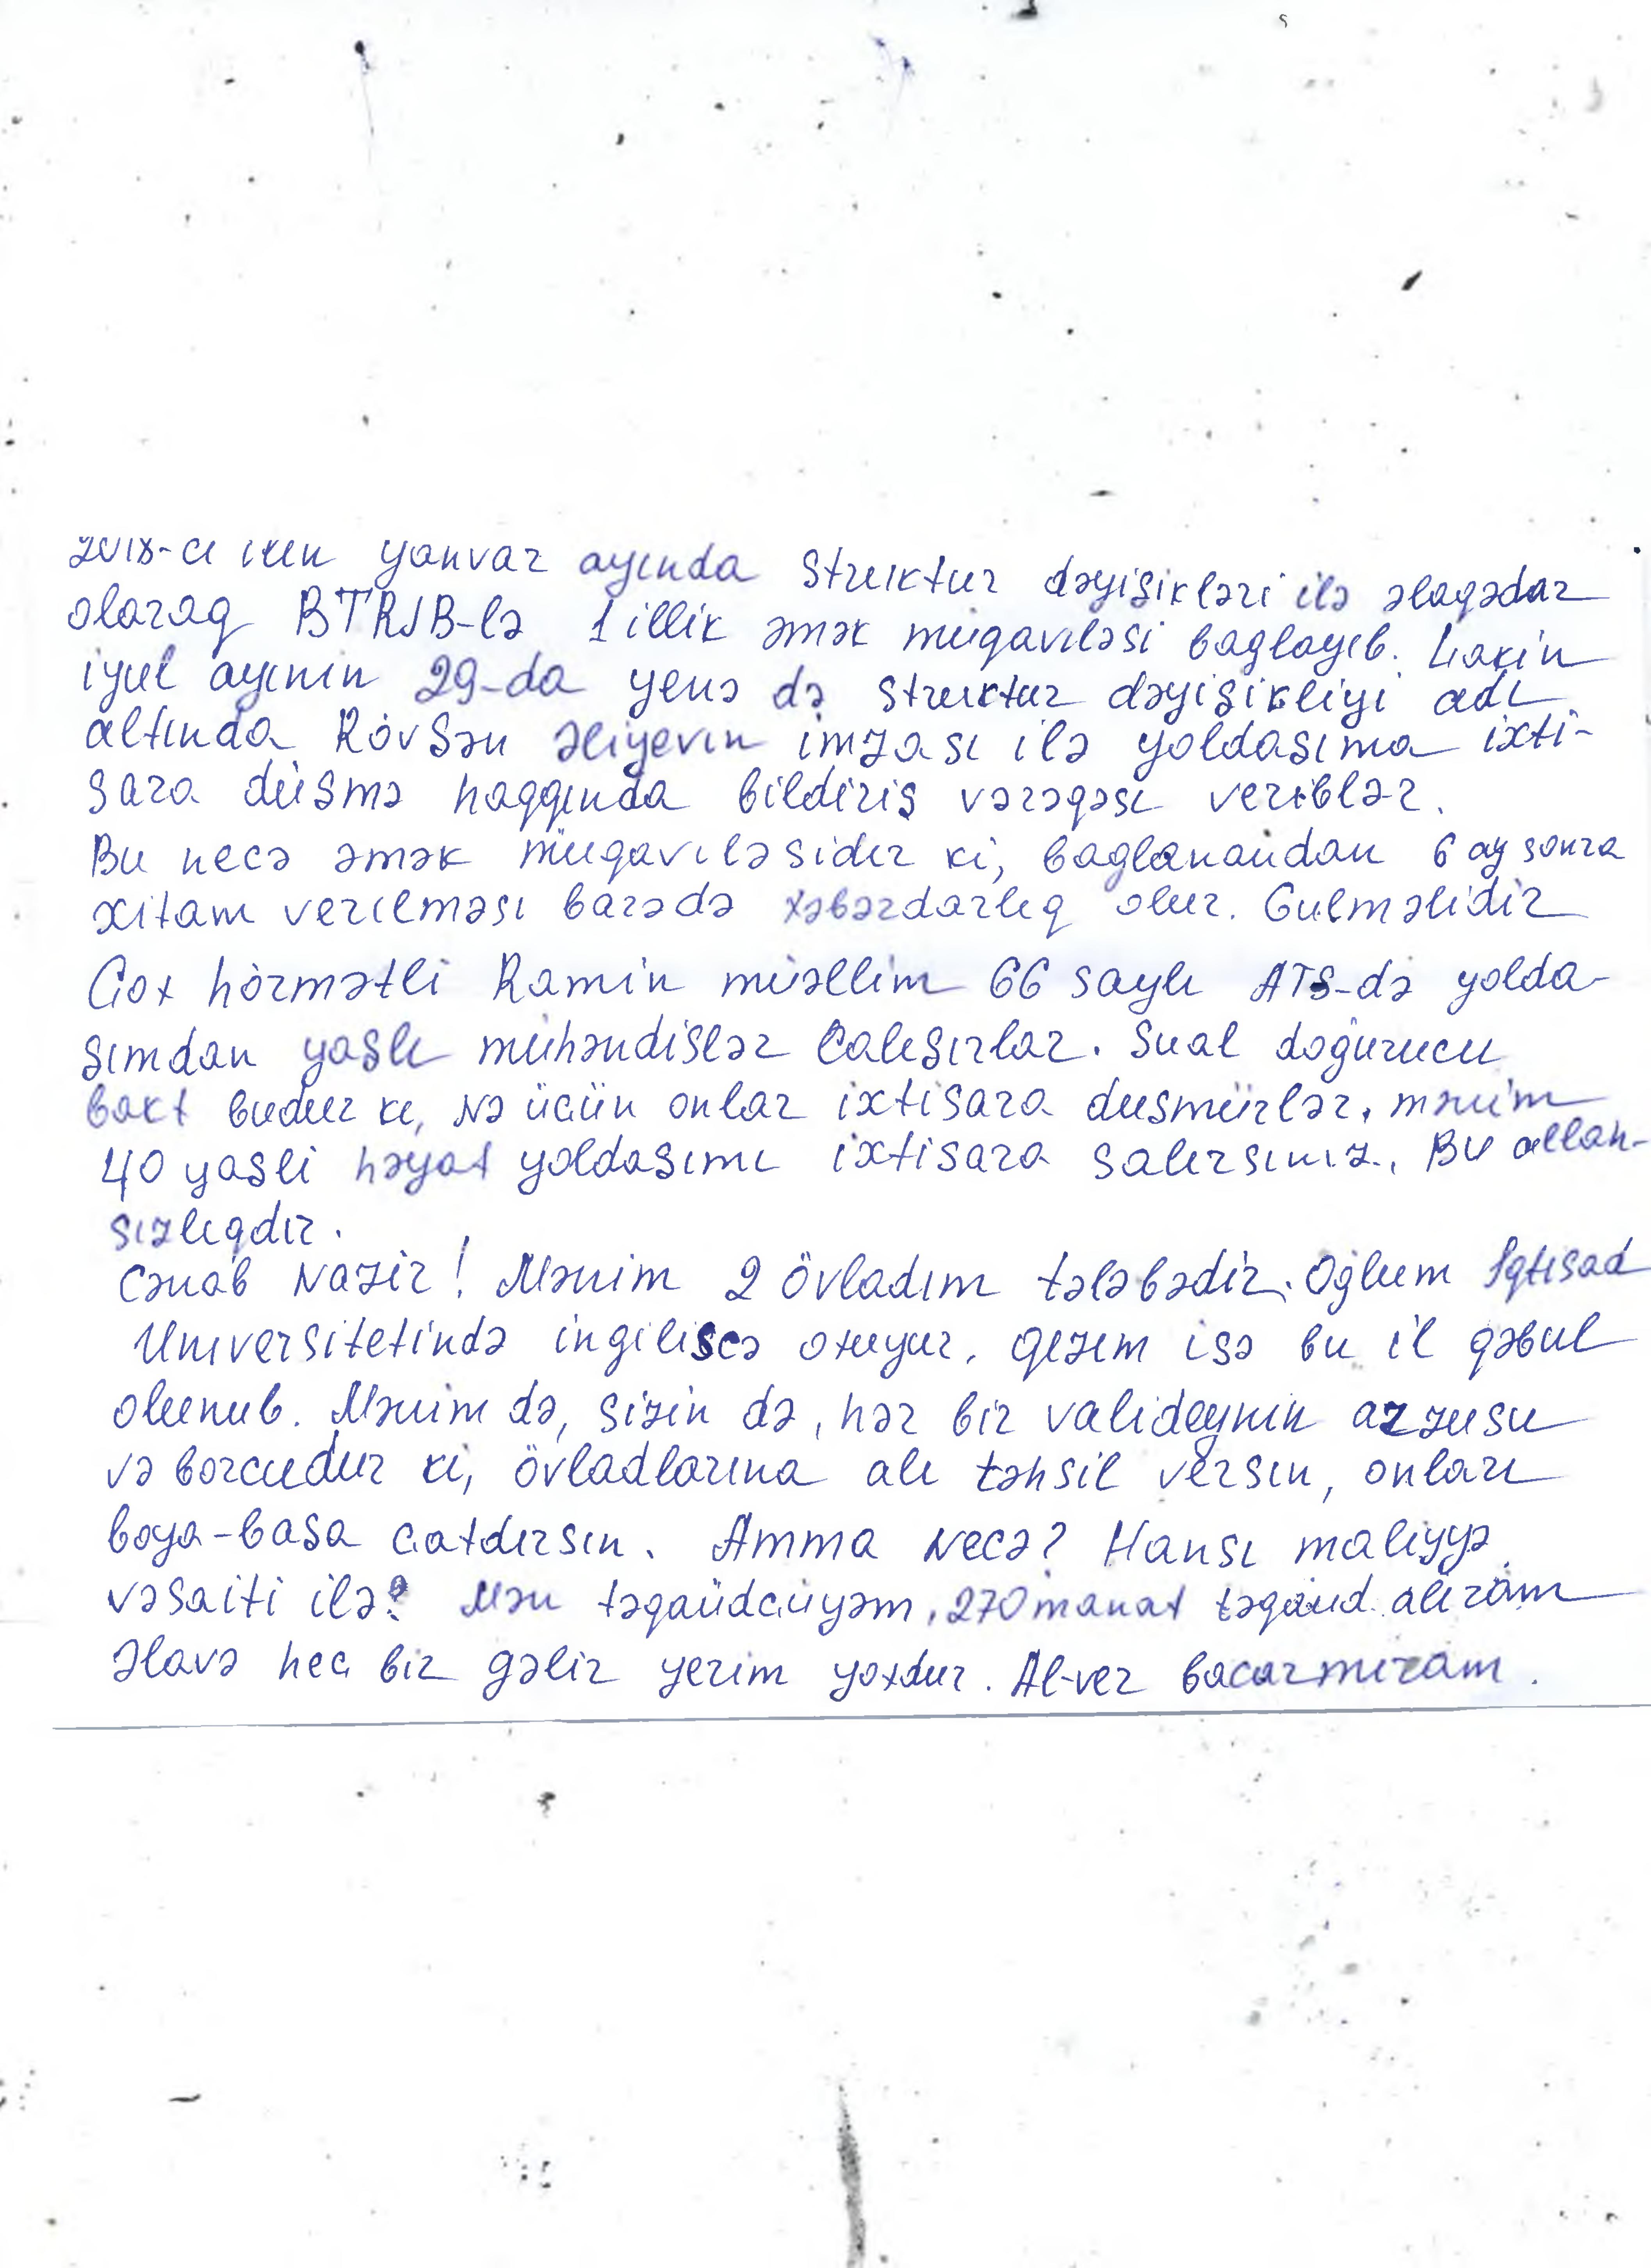 2018-ci ilin yanvar ayında struktur dəyişikləri ilə əlaqədar
olaraq BTRİB-lə 1 illik əmək müqaviləsi bağlayıb. Lakin
iyul ayının 29-da yenə də struktur dəyişikliyi adı
altında Rövşən Əliyevin imzası ilə yoldaşıma ixti-
sara düşmə haqqında bildiriş vərəqəsi veriblər.
Bu necə əmək müqaviləsidir ki, bağlanandan 6 ay sonra
xitam verilməsi barədə xəbərdarlıq olur. Gülməlidir
Çox hörmətli Ramin müəllim 66 saylı ATS-də yolda-
şımdan yaşlı mühəndislər çalışırlar. Sual doğurucu
fakt budur ki, nə üçün onlar ixtisara düşmürlər, mənim
40 yaşlı həyat yoldaşımı ixtisara salırsınız. Bu allah-
sızlıqdır.
Cənab Nazir! Mənim 2 övladım tələbədir. Oğlum İqtisad
Universitetində ingiliscə oxuyur, qızım isə bu il qəbul
olunub. Mənim də, sizin də, hər bir valideynin arzusu
və borcudur ki, övladlarına ali təhsil versin, onları
boya-başa çatdırsın. Amma necə? Hansı maliyyə
vəsaiti ilə? Mən təqaüdçüyəm, 270 manat təqaüd alıram
Əlavə heç bir gəlir yerim yoxdur. Al-ver bacarmıram.